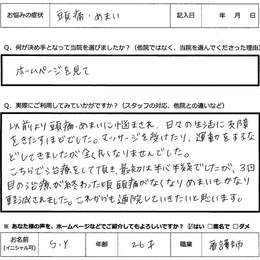 お悩みの症状 頭痛・めまい 記入日 年 月 日
Q. 何が決め手となって当院を選びましたか？（他院ではなく、当院を選んでくださった理由）
ホームページを見て
Q. 実際にご利用してみていかがですか？（スタッフの対応、他院との違いなど）
以前より頭痛・めまいに悩まされ、日々の生活に支障
をきたすほどでした。マッサージを受けたり、運動をするな
どしてきましたが全く良くなりませんでした。
こちらで治療をして頂き、最初は半信半疑でしたが、3回
目の治療が終わった頃頭痛がなくなりめまいもかなり
軽減されました。これからも通院していきたいと思います。
※ あなた様の声を、ホームページなどでご紹介してもよろしいですか？ ☑はい □匿名で □ダメ
お名前 S.Y 年齢 26才 職業 看護師
(イニシャル可)